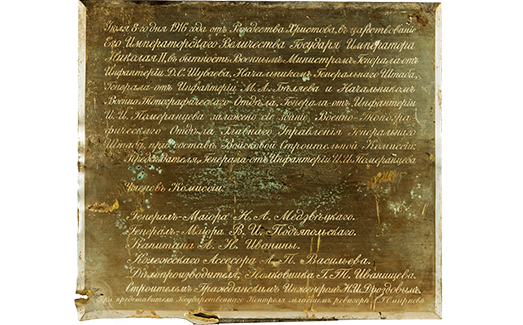 Июля 8-го дня 1916 года отъ Рождества Христова, въ царствованiе
Его Императорскаго Величества Государя Императора
Николая II, въ бытность Военнымъ Министромъ Генерала отъ
Инфантерiи Д.С. Шуваева, Начальникомъ Генеральнаго Штаба,
Генерала отъ Инфантерiи М.А. Бѣляева и Начальникомъ
Военно-Топографическаго Отдѣла, Генерала отъ Инфантерiи
И.И. Померанцева заложено сiе зданiе Военно-Топогра
фическаго Отдѣла Главнаго Управленiя Генеральнаго
Штаба, при составѣ Войсковой Строительной Комиссiи:
Предсѣдателя, Генерала-отъ-Инфантерiи И.И. Померанцева
Членовъ Комиссiи:
Генералъ-Маiора Н.А. Медзвѣцкаго.
Генералъ-Маiора В.И. Подъяпольскаго.
Капитана А.Н. Иванины.
Колежскаго Асесора А.П. Васильева.
Дѣлопроизводителя, Полковника П.П. Иванищева.
Строителемъ Гражданскимъ Инженеромъ Н.И. Дроздовымъ.
При представителѣ Государственнаго Контроля младшемъ ревизорѣ Смирновѣ